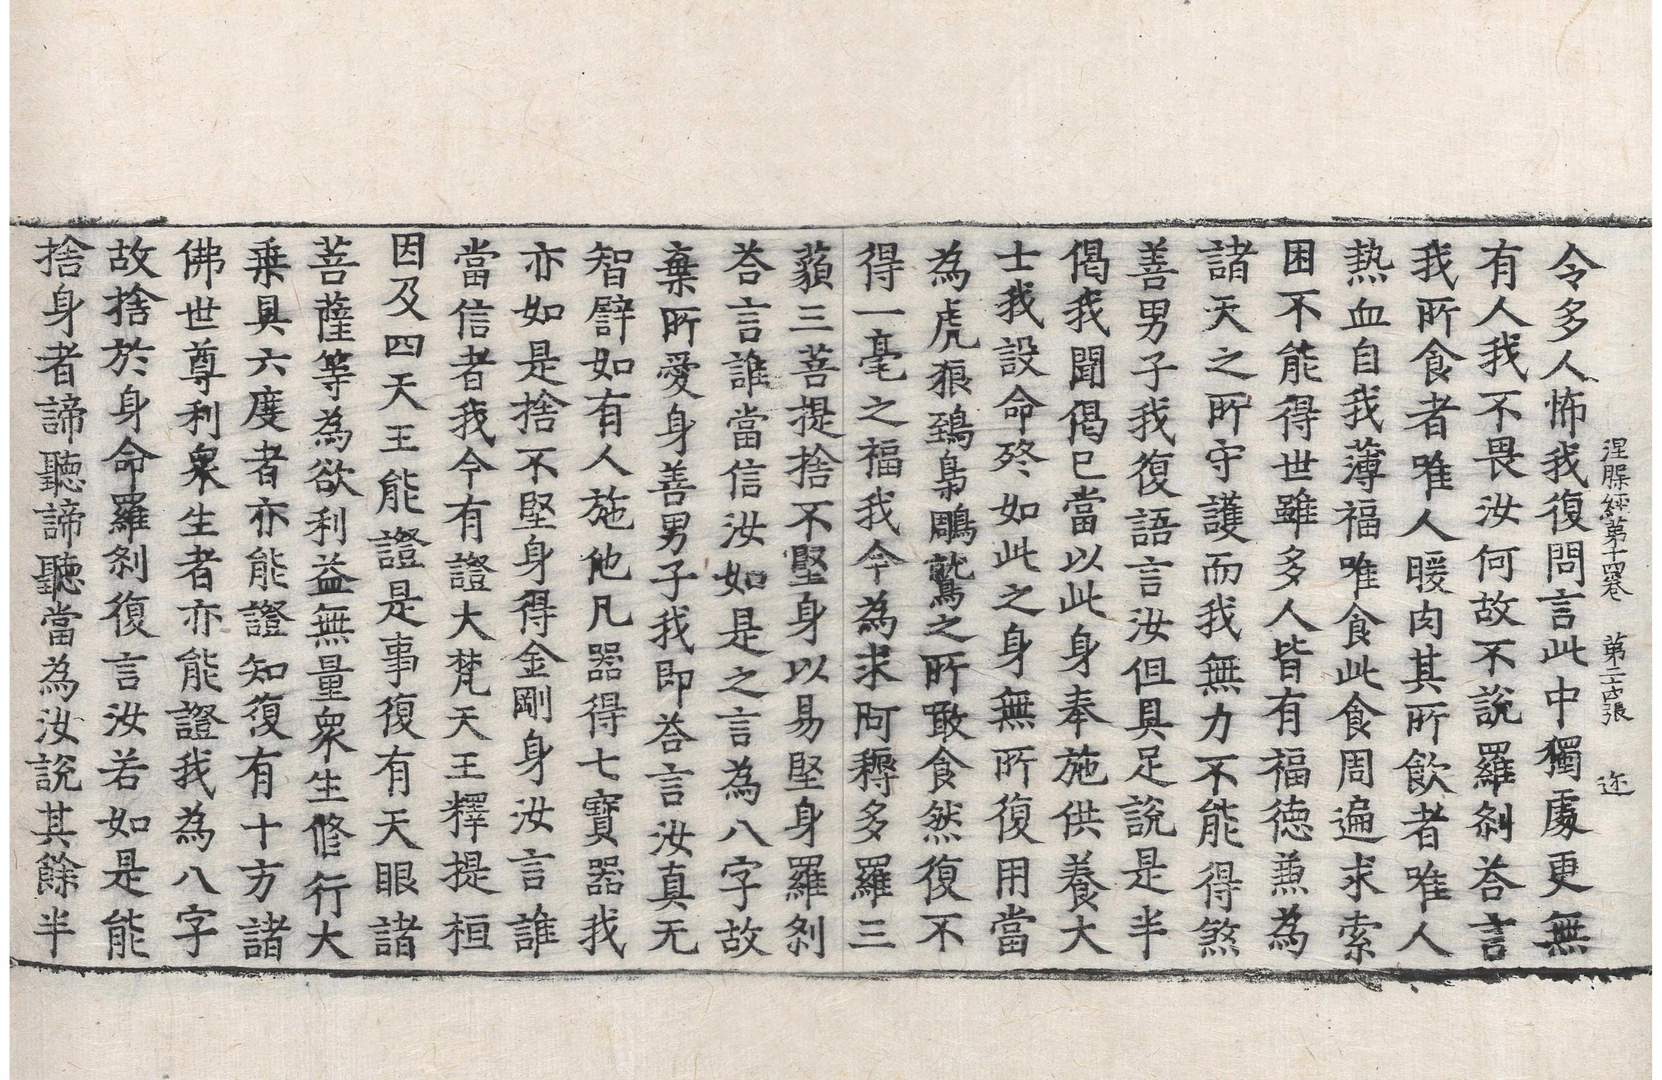 涅槃經第十四卷　第二十四張　迩
令多人怖我復問言此中獨處更無
有人我不畏汝何故不說羅剎荅言
我所食者唯人暖肉其所飲者唯人
熱血自我薄福唯食此食周遍求索
困不能得世雖多人皆有福德兼為
諸天之所守護而我無力不能得煞
善男子我復語言汝但具足說是半
偈我聞偈已當以此身奉施供養大
士我設命終如此之身無所復用當
為虎狼鵄梟鵰鷲之所噉食然復不
得一毫之福我今為求阿耨多羅三
藐三菩提捨不堅身以易堅身羅剎
荅言誰當信汝如是之言為八字故
棄所愛身善男子我即荅言汝真无
智譬如有人施他凡器得七寶器我
亦如是捨不堅身得金剛身汝言誰
當信者我今有證大梵天王釋提桓
因及四天王能證是事復有天眼諸
菩薩等為欲利益無量衆生修行大
乘具六度者亦能證知復有十方諸
佛世尊利衆生者亦能證我為八字
故捨於身命羅剎復言汝若如是能
捨身者諦聽諦聽當為汝說其餘半